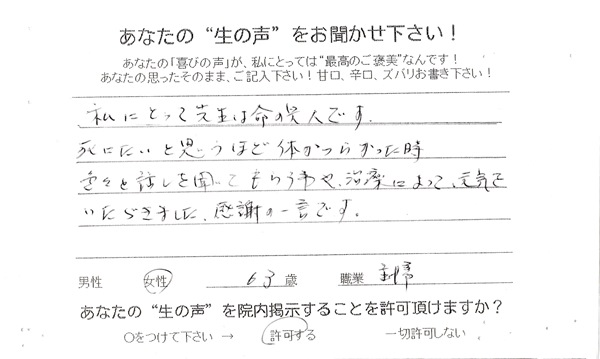 あなたの“生の声”をお聞かせ下さい！
あなたの「喜びの声」が、私にとっては“最高のご褒美”なんです！
あなたの思ったそのまま、ご記入下さい！甘口、辛口、ズバリお書き下さい！
私にとって先生は命の恩人です。
死にたいと思うほど体がつらかった時
色々と話しを聞いてもらう事や、治療によって、元気を
いただきました。感謝の一言です。
男性 女性 63歳 職業 主婦
あなたの“生の声”を院内掲示することを許可頂けますか？
○をつけて下さい → 許可する 一切許可しない